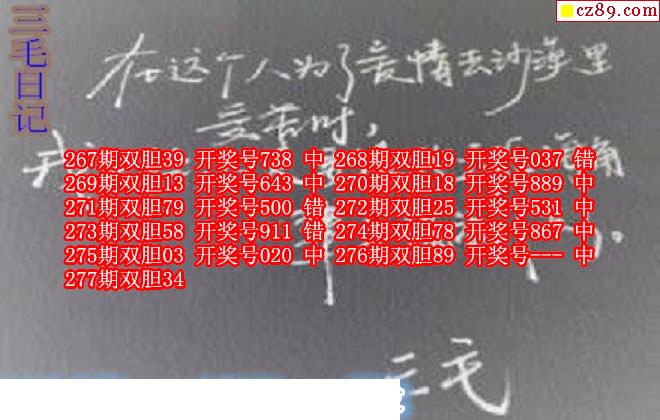 cz89.com
三毛日记
在这个人为了爱情去沙漠里
受苦时，
267期双胆39 开奖号738 中 268期双胆19 开奖号037 错
269期双胆13 开奖号643 中 270期双胆18 开奖号889 中
271期双胆79 开奖号500 错 272期双胆25 开奖号531 中
273期双胆58 开奖号911 错 274期双胆78 开奖号867 中
275期双胆03 开奖号020 中 276期双胆89 开奖号--- 中
277期双胆34
三毛